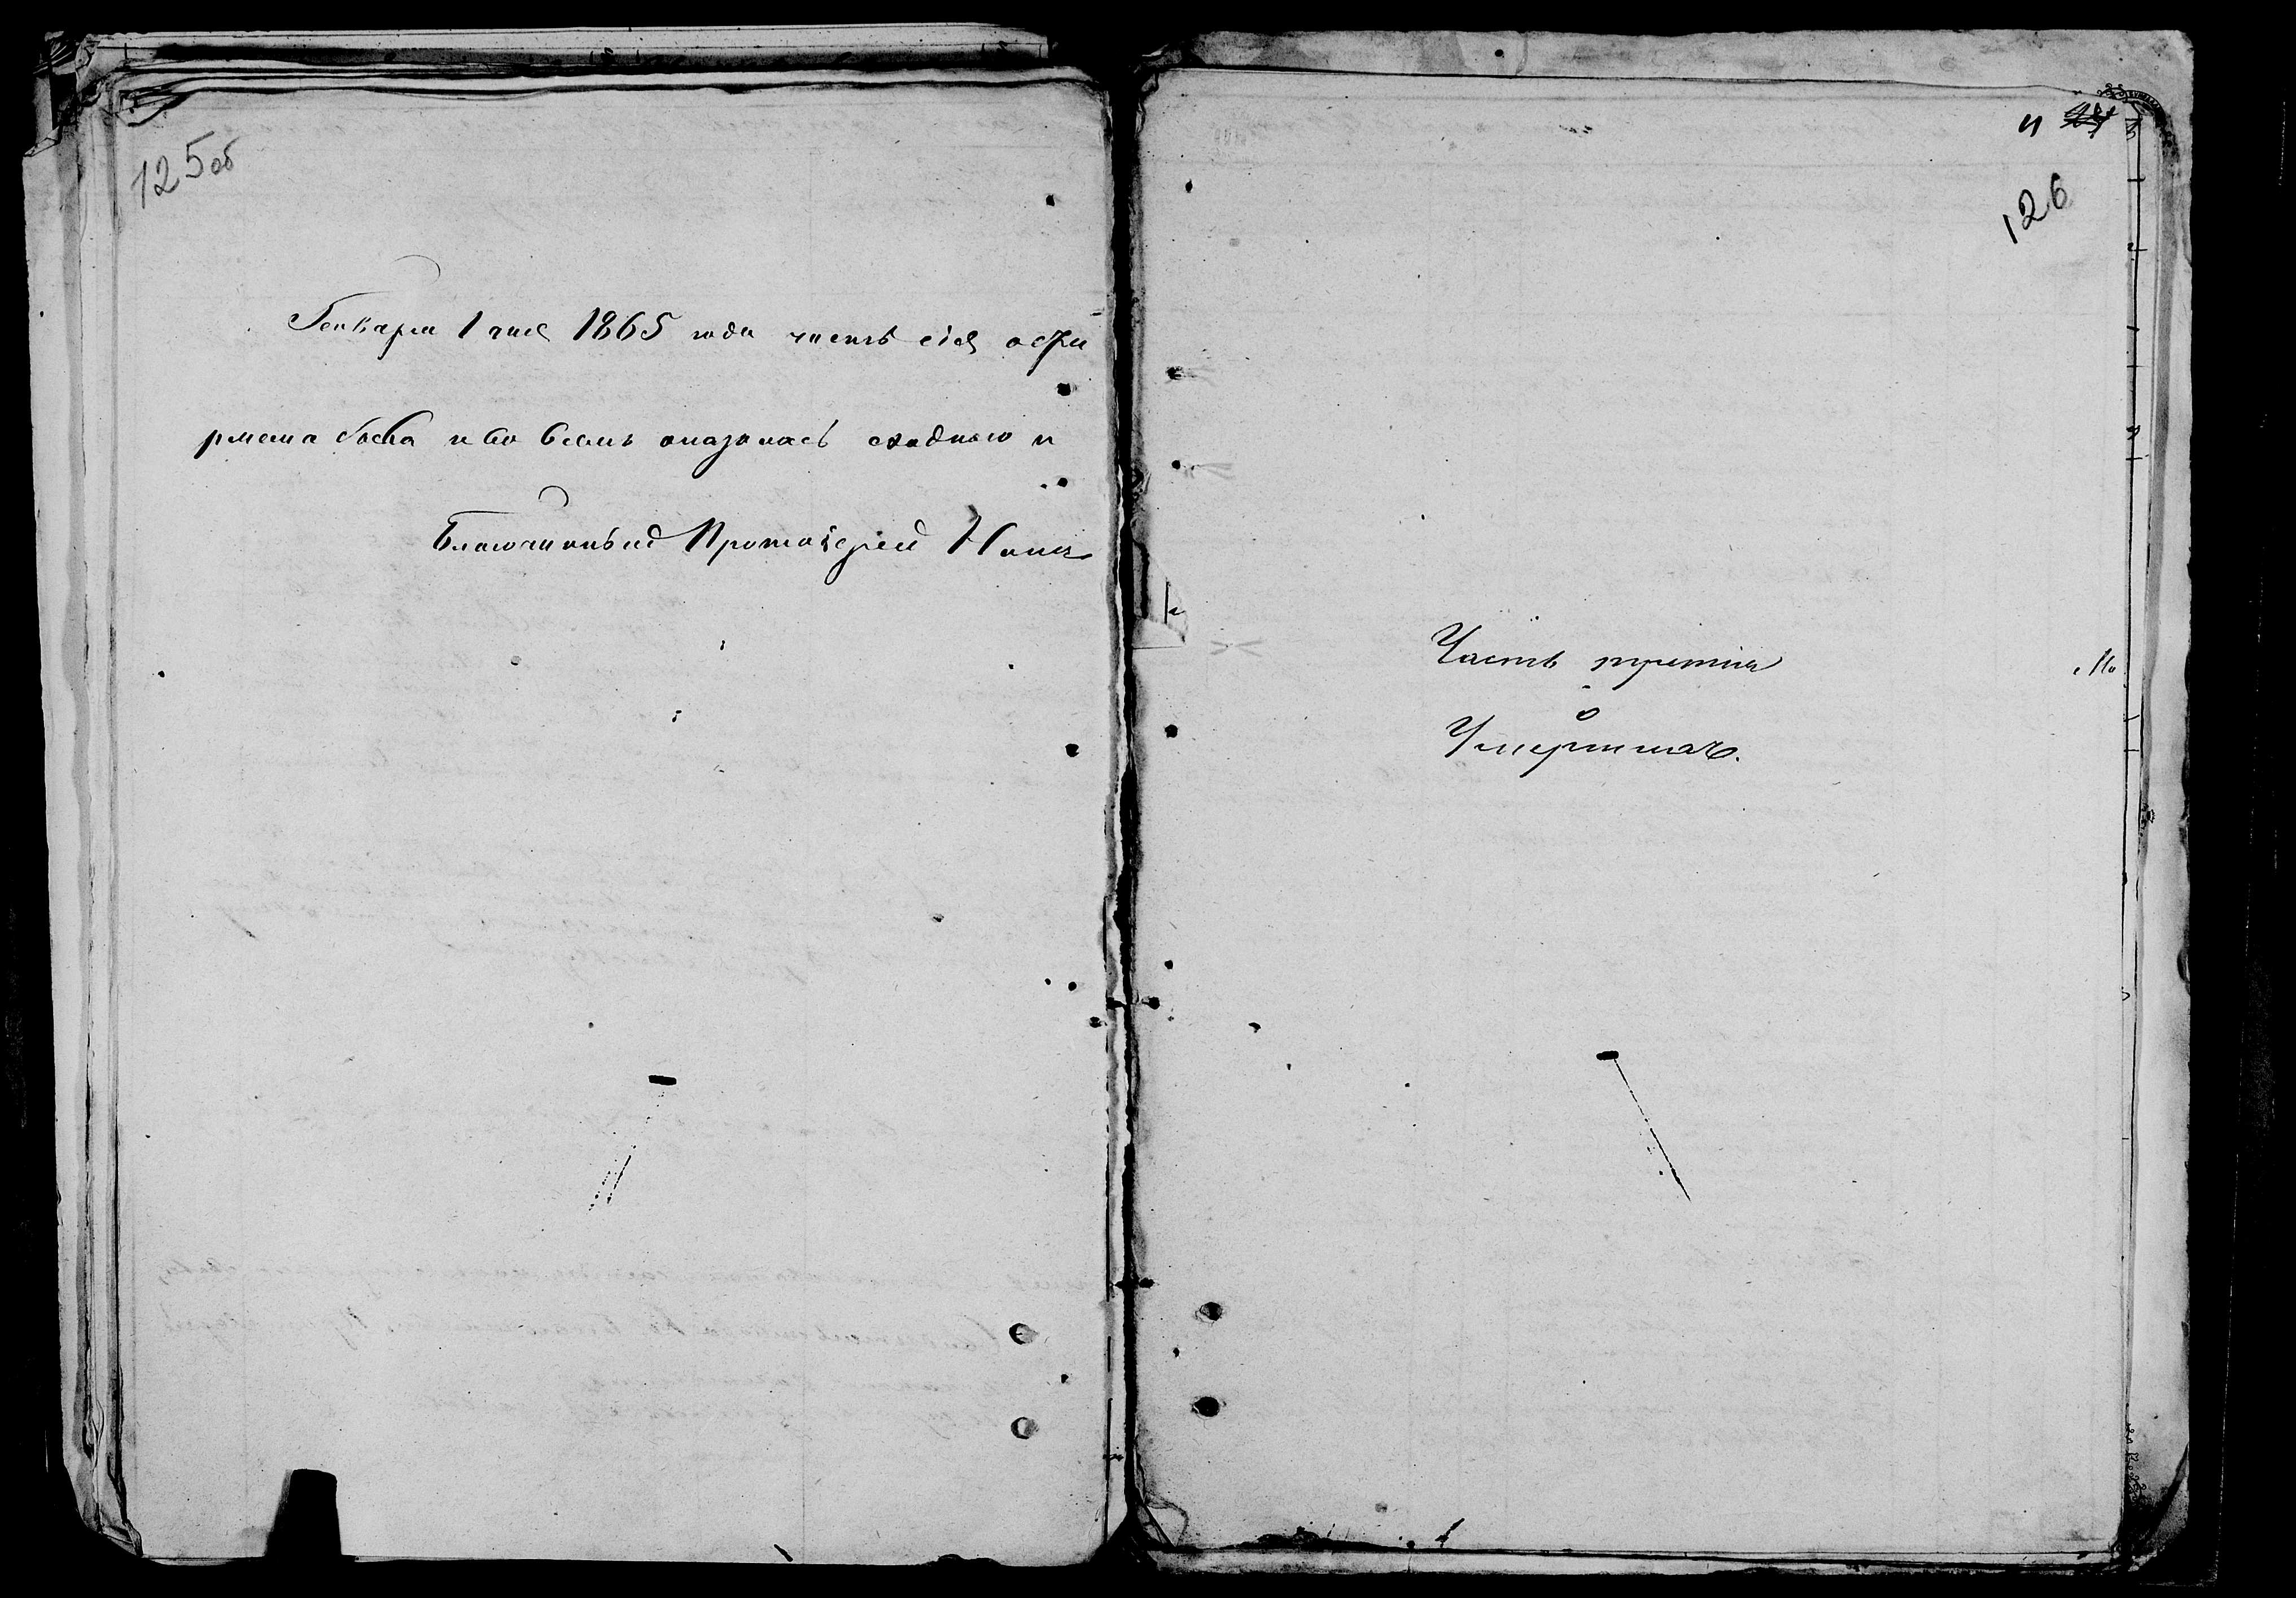 125об
Генваря 1 дня 1865 года часть сія
и во всемъ оказалась сходною и
Благочинный Протоіерей
126
Часть третія
о
Умершихъ.